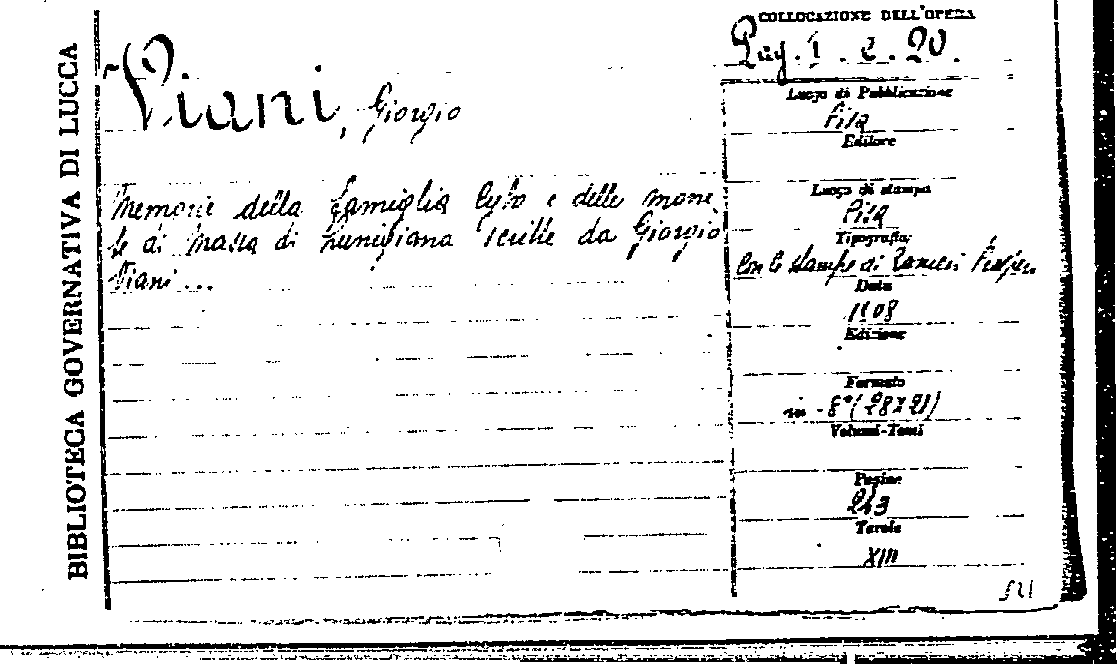 BIBLIOTECA GOVERNATIVA DI LUCCA
Viani, Giorgio
Memorie della famiglia Cybo e delle mone
te di Massa di Lunigiana scritte da Giorgio
Viani...
COLLOCAZIONE DELL'OPERA
Pag. I. e. 20.
Luogo di Pubblicazione
Pisa
Editore
Luogo di stampa
Pisa
Tipografia
Con le stampe di Ranieri Prosperi
Data
1808
Edizione
Formato
in-8° (28x21)
Volumi-Tomi
Pagine
243
Tavole
XIII
521